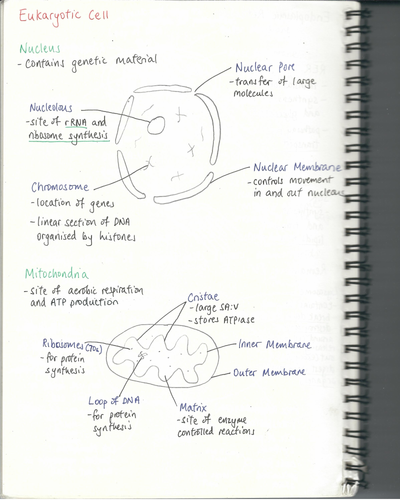 Eukaryotic Cell
Nucleus
- Contains genetic material
Nuclear Pore
- transfer of large
molecules
Nucleolous
- site of rRNA and
ribosome synthesis
Nuclear Membrane
- controls movement
in and out nucleus
Chromosome
- location of genes
- linear section of DNA
organised by histones
Mitochondria
- site of aerobic respiration
and ATP production
Cristae
- large SA:V
- stores ATPlase
Ribosomes (70s)
- for protein
synthesis
Inner Membrane
Outer Membrane
Loop of DNA
- for protein
synthesis
Matrix
- site of enzyme
controlled reactions